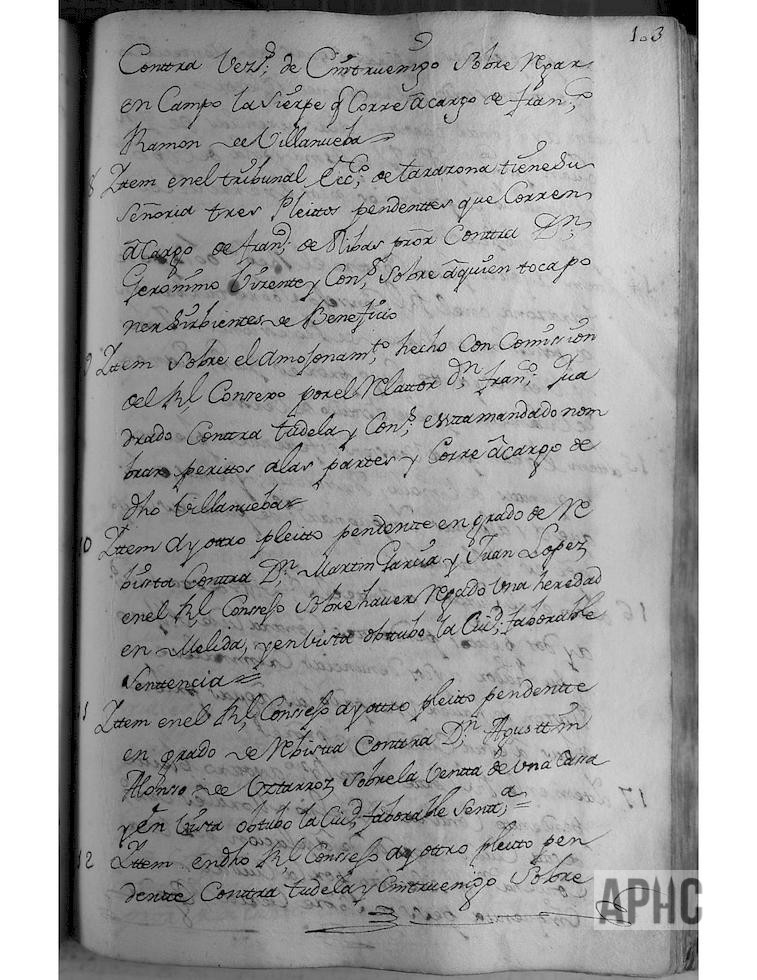 103
Conttra Vezs. de Cinttruenigo Sobre Regar
en Campo la Sierpe q Corre a cargo de fran.co
Ramon de Villanueba
8 Ittem en el tribunal Ecc.o de tarazona tiene Su
Señoria tres Pleittos pendenttes que Corren
a Cargo de fran.co de Ribas pror Conttra D.n
Geronimo Vizente y Cons. Sobre a quien toca po
ner Sirbientes de Beneficio
9 Ittem Sobre el Amojonam.to hecho Con Comission
del Rl Consexo por el Relattor D.n fran.co Jua
drado Conttra tudela y Cons. estta mandado nom
brar perittos a las partes y Corre a cargo de
dho Villanueba
10 Ittem ay ottro pleitto pendentte en grado de Re
bista Conttra D.n Martin Garcia y Juan Lopez
en el Rl Consejo Sobre haver Regado Una heredad
en Melida, y en bista obtubo la Ciud. faborable
Senttencia =
11 Ittem en el Rl Consejo ay ottro pleitto pendentte
en grado de Rebista Conttra D.n Agusttin
Alonso de Uztarroz Sobre la Ventta de Una Casa
y en Vista obtubo la Ciud. faborable Senta =
12 Ittem en dho Rl Consejo ay ottro pleitto pen
dentte Conttra tudela y Cinttruenigo Sobre
16
17
APHC